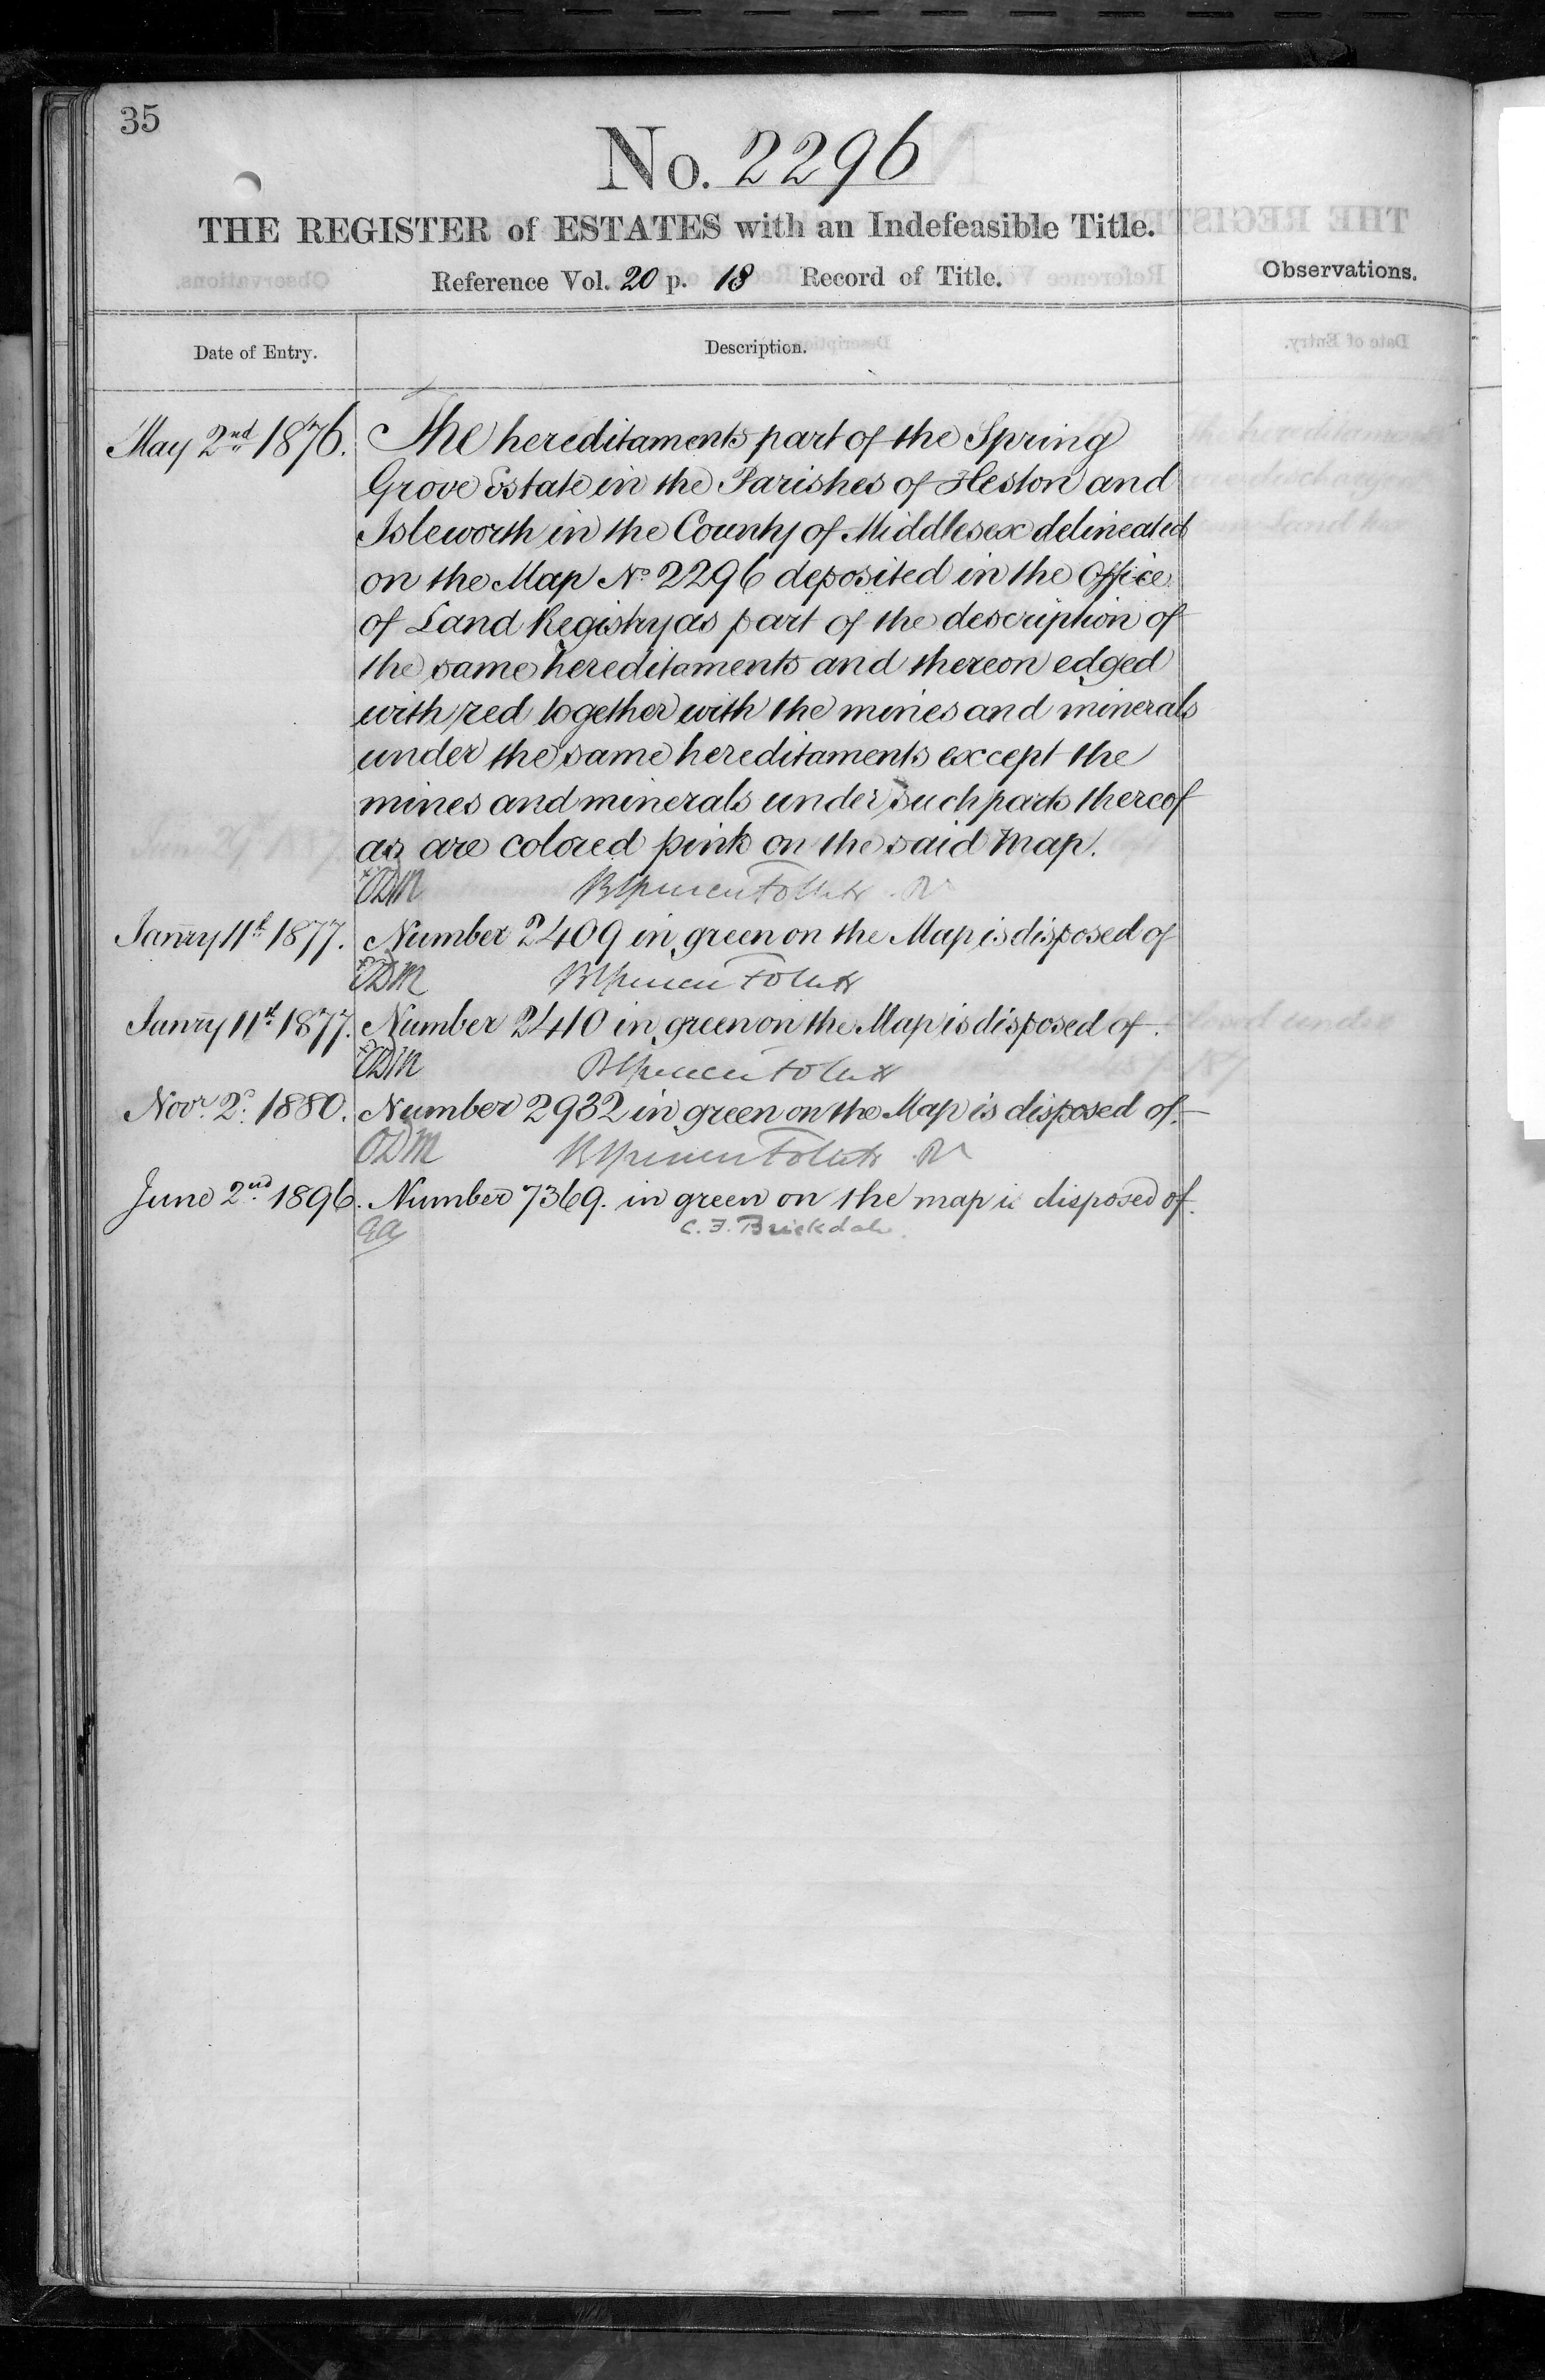 35
No. 2296
THE REGISTER of ESTATES with an Indefeasible Title.
Reference Vol. 20 p. 18 Record of Title.
Observations.
Date of Entry.
Description.
May 2nd 1876. The hereditaments part of the Spring
Grove Estate in the Parishes of Heston and
Isleworth in the County of Middlesex delineated
on the Map No 2296 deposited in the Office
of Land Registry as part of the description of
the same hereditaments and thereon edged
with red together with the mines and minerals
under the same hereditaments except the
mines and minerals under such parts thereof
as are colored pink on the said Map.
ODM
Janry 11th 1877. Number 2409 in green on the Map is disposed of
ODM
Janry 11th 1877. Number 2410 in green on the Map is disposed of.
ODM
Novr. 2d. 1880. Number 2932 in green on the Map is disposed of.
ODM
June 2nd 1896. Number 7369. in green on the map is disposed of.
C. F. Brickdale.